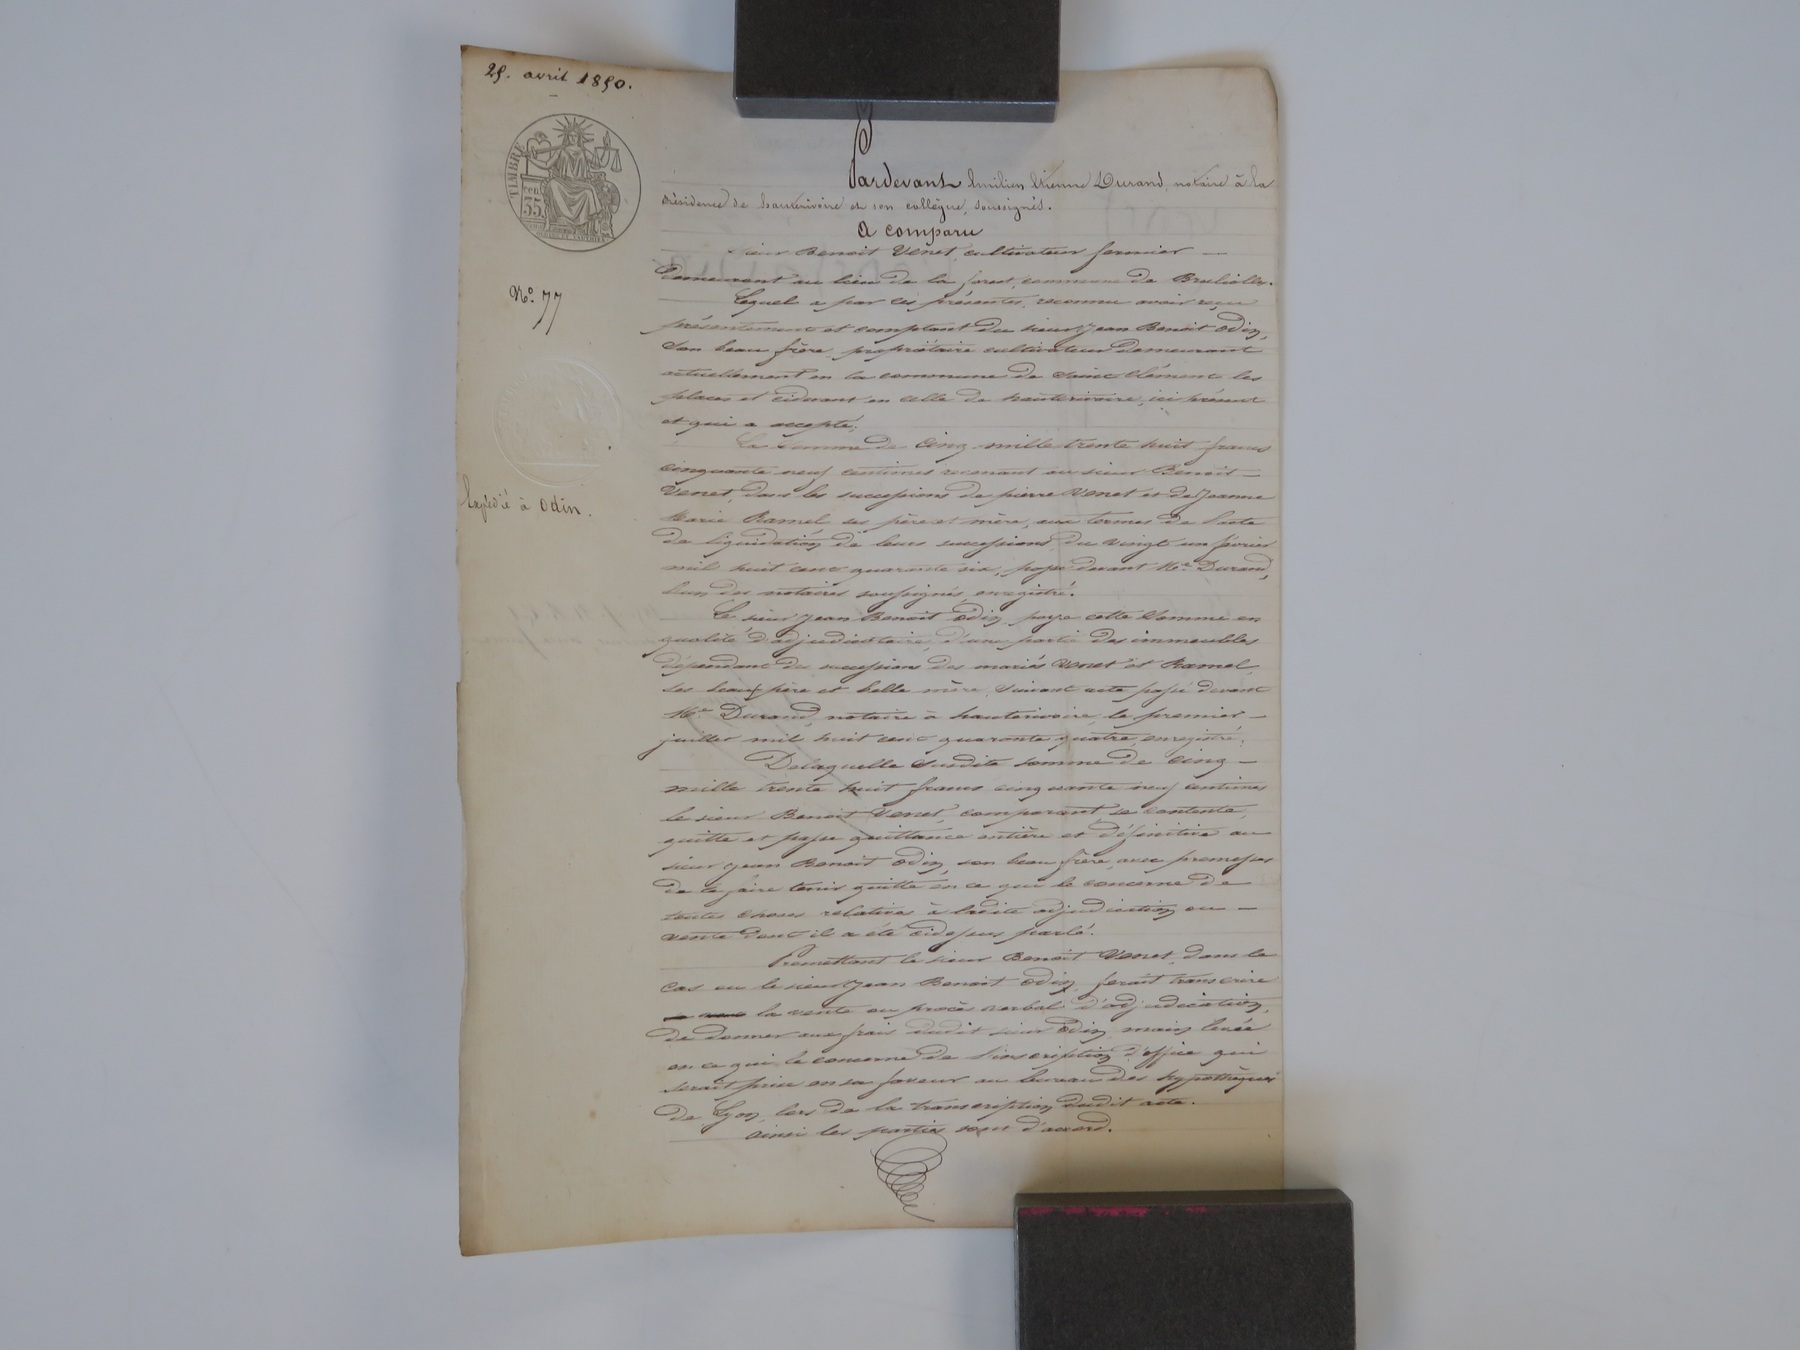 25. avril 1850.
TIMBRE
cen
35
N.º 77
Expédié à Odin.
Pardevant Emilien Etienne Durand, notaire à la
résidence de hauterivoire et son collègue, soussignés.
A comparu
sieur Benoit Venet, cultivateur fermier —
demeurant au lieu de la foret, commune de Brullioles.
Lequel a par ces présentes, reconnu avoir reçu
présentement et comptant du sieur Jean Benoit Odin,
son beau frère, propriétaire cultivateur demeurant
actuellement en la commune de Saint Clément les
places et cidevant en celle de hauterivoire, ici présent
et qui a accepté,
La Somme de Cinq mille trente huit francs
cinquante neuf centimes revenant au sieur Benoit —
Venet, dans les successions de pierre Venet et de Jeanne
Marie Ramel ses père et mère, aux termes de l'acte
de liquidation de leurs successions, du vingt un février
mil huit cent quarante six, passé devant Me. Durand,
l'un des notaires soussignés, enregistré.
Le sieur Jean Benoit Odin, paye cette Somme en
qualité d'adjudicataire, d'une partie des immeubles
dépendant des successions des mariés Venet et Ramel,
ses beau père et belle mère, suivant acte passé devant
Me. Durand, notaire à hauterivoire, le premier —
juillet mil huit cent quarante quatre, enregistré.
Delaquelle susdite somme de cinq —
mille trente huit francs cinquante neuf centimes
le sieur Benoit Venet, comparant, se contente,
quitte et passe quittance entière et définitive au
sieur Jean Benoit Odin, son beau frère, avec promesses
de le faire tenir quitte en ce qui le concerne de
toutes choses relatives à ladite adjudication ou —
vente dont il a été cidessus parlé.
Promettant le sieur Benoit Venet, dans le
cas ou le sieur Jean Benoit Odin, ferait transcrire
la vente ou procès verbal d'adjudication,
de donner aux frais dudit sieur Odin, main levée
en ce qui le concerne de l'inscription d'office qui
serait prise en sa faveur au bureau des hypothèques
de Lyon, lors de la transcription dudit acte.
Ainsi les parties sont d'accord.